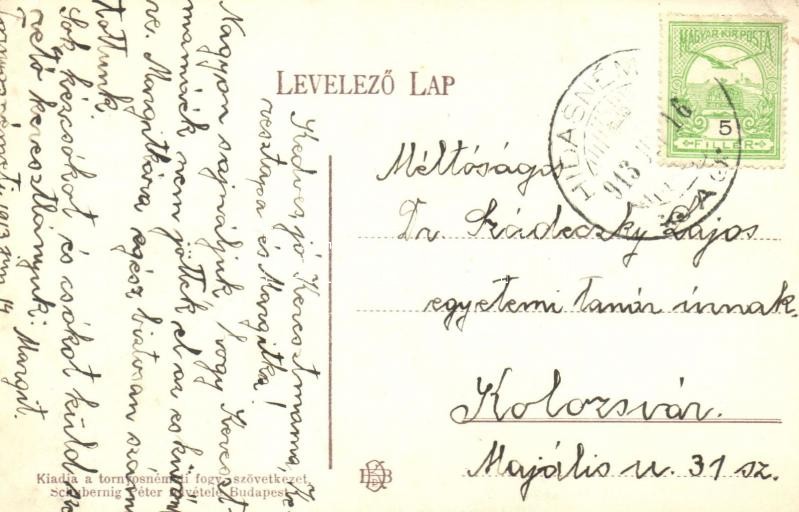 LEVELEZŐ LAP
MAGYAR KIR. POSTA
5
FILLÉR
HIDASNÉM
913
16
Méltóságos
Dr. Szádeczky Lajos
egyetemi tanár úrnak
Kolozsvár.
Majális u. 31 sz.
Kedves jó Keresztmama, Ke-
resztapa és Margitka!
Nagyon sajnáljuk hogy Kereszt-
mamáék nem jöttek el az esküvő-
re. Margitkára egész biztosan számí-
tottunk.
Sok kézcsókot és csókot küld sze-
rető keresztlányuk: Margit.
Tornyosnémeti, 1913 jun 14
Kiadja a tornyosnémeti fogy. szövetkezet.
Schubernig Péter felvétele Budapest